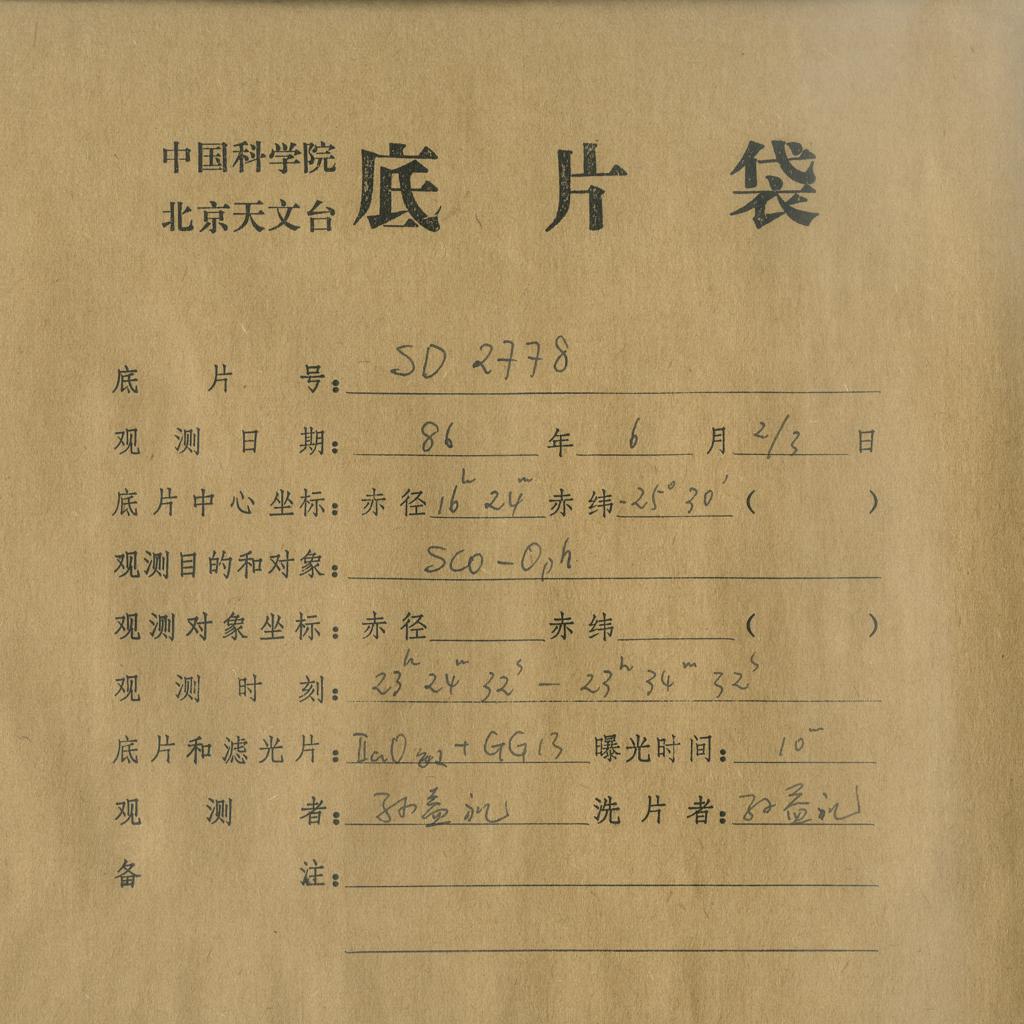 中国科学院
北京天文台
底片袋
底片号：SD 2778
观测日期：86年6月2/3日
底片中心坐标：赤径16ʰ 24ᵐ赤纬-25°30′（ ）
观测目的和对象：SCO-Oph
观测对象坐标：赤径 赤纬 （ ）
观测时刻：23ʰ 24ᵐ 32ˢ — 23ʰ 34ᵐ 32ˢ
底片和滤光片：IIaO + GG13 曝光时间：10ᵐ
观测者：孙益礼 洗片者：孙益礼
备注：